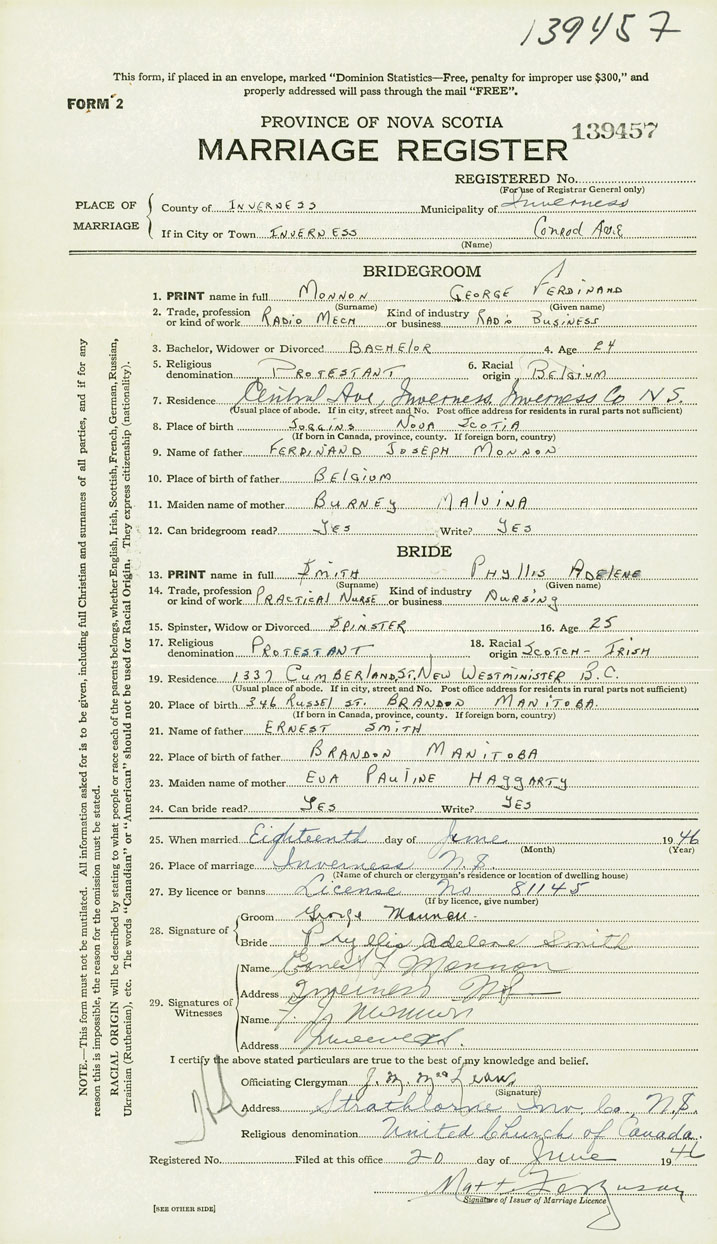 139457
This form, if placed in an envelope, marked "Dominion Statistics—Free, penalty for improper use $300," and
properly addressed will pass through the mail "FREE".
FORM 2
PROVINCE OF NOVA SCOTIA
139457
MARRIAGE REGISTER
REGISTERED No.
(For use of Registrar General only)
PLACE OF MARRIAGE
County of INVERNESS Municipality of Inverness
If in City or Town INVERNESS Conrod Ave
(Name)
BRIDEGROOM
1. PRINT name in full MONNON GEORGE FERDINAND
(Surname) (Given name)
2. Trade, profession or kind of work RADIO MECH Kind of industry or business RADIO BUSINESS
3. Bachelor, Widower or Divorced BACHELOR 4. Age 24
5. Religious denomination PROTESTANT 6. Racial origin BELGIUM
7. Residence Central Ave, Inverness, Inverness Co N.S.
(Usual place of abode. If in city, street and No. Post office address for residents in rural parts not sufficient)
8. Place of birth JOGGINS NOVA SCOTIA
(If born in Canada, province, county. If foreign born, country)
9. Name of father FERDINAND JOSEPH MONNON
10. Place of birth of father BELGIUM
11. Maiden name of mother BURNEY MALVINA
12. Can bridegroom read? YES Write? YES
BRIDE
13. PRINT name in full SMITH PHYLLIS ADELENE
(Surname) (Given name)
14. Trade, profession or kind of work PRACTICAL NURSE Kind of industry or business NURSING
15. Spinster, Widow or Divorced SPINSTER 16. Age 25
17. Religious denomination PROTESTANT 18. Racial origin SCOTCH-IRISH
19. Residence 1337 CUMBERLAND ST. NEW WESTMINISTER B.C.
(Usual place of abode. If in city, street and No. Post office address for residents in rural parts not sufficient)
20. Place of birth 346 RUSSEL ST. BRANDON MANITOBA.
(If born in Canada, province, county. If foreign born, country)
21. Name of father ERNEST SMITH
22. Place of birth of father BRANDON MANITOBA
23. Maiden name of mother EVA PAULINE HAGGARTY
24. Can bride read? YES Write? YES
25. When married Eighteenth day of June 1946
(Month) (Year)
26. Place of marriage Inverness N.S.
(Name of church or clergyman's residence or location of dwelling house)
27. By licence or banns License No 81145
(If by licence, give number)
28. Signature of
Groom George Monnon
Bride Phyllis Adelene Smith
29. Signatures of Witnesses
Name Monnon
Address Inverness NS
Name
Address Inverness
I certify the above stated particulars are true to the best of my knowledge and belief.
Officiating Clergyman J. M. McLean
(Signature)
Address Strathlorne Inv. Co., N.S.
Religious denomination United Church of Canada.
Registered No. Filed at this office 20 day of June 1946
Matt. Ferguson
Signature of Issuer of Marriage Licence
[SEE OTHER SIDE]
NOTE.—This form must not be mutilated. All information asked for is to be given, including full Christian and surnames of all parties, and if for any
reason this is impossible, the reason for the omission must be stated.
RACIAL ORIGIN will be described by stating to what people or race each of the parents belongs, whether English, Irish, Scottish, French, German, Russian,
Ukrainian (Ruthenian), etc. The words "Canadian" or "American" should not be used for Racial Origin. They express citizenship (nationality).